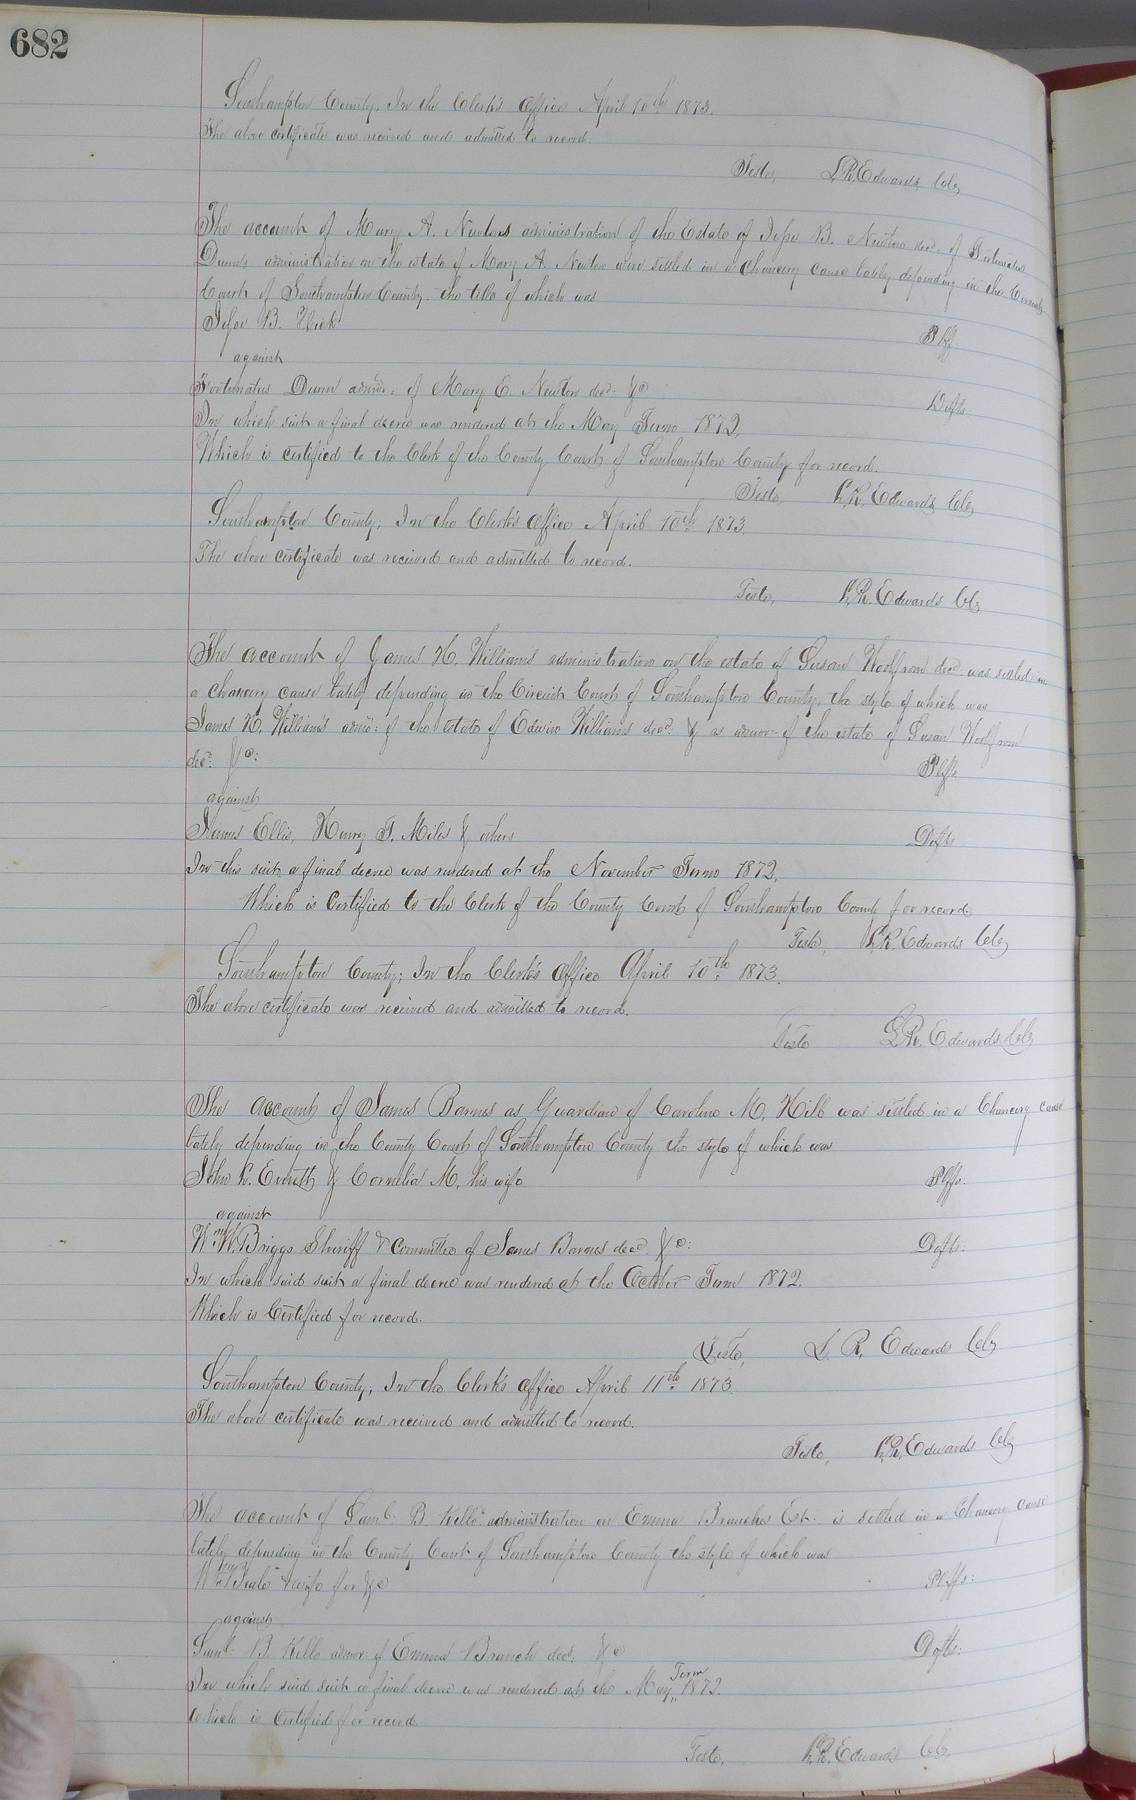 682
Southampton County, In the Clerk's Office April 10th 1873.
The above certificate was received and admitted to record.
Teste, L. R. Edwards Clk
The account of Mary A. Newton's administration of the Estate of Jesse B. Newton decd. of Fortunatus
Dunn's administration on the estate of Mary A. Newton were settled in a chancery cause lately depending in the Circuit
Court of Southampton County, the title of which was
Jesse B. Vick Plff
against
Fortunatus Dunn admor: of Mary E. Newton decd. &c Defts
In which suit a final decree was rendered at the May Term 1872,
Which is certified to the Clerk of the County Court of Southampton County for record.
Teste, L. R. Edwards Clk
Southampton County; In the Clerk's Office April 10th 1873.
The above certificate was received and admitted to record.
Teste, L. R. Edwards Clk
The account of James H. Williams administration on the estate of Susan Woolfrom decd. was settled in
a chancery cause lately depending in the Circuit Court of Southampton County, the style of which was
James H. Williams admor: of the estate of Edwin Williams decd. & as admor. of the estate of Susan Woolfrom
decd. &c: Plffs
against
James Ellis, Henry T. Miles & others Defts
In this suit a final decree was rendered at the November Term 1872,
Which is Certified to the Clerk of the County Court of Southampton County for record
Teste, L. R. Edwards Clk
Southampton County; In the Clerk's Office April 10th 1873.
The above certificate was received and admitted to record.
Teste L. R. Edwards Clk
The account of James Barnes as Guardian of Caroline M. Hill was settled in a Chancery cause
lately depending in the County Court of Southampton County the style of which was
John R. Everett & Cornelia M. his wife Plffs:
against
Wm. W. Briggs Sheriff & Committee of James Barnes decd. &c: Defts:
In which said suit a final decree was rendered at the October Term 1872.
Which is Certified for record.
Teste, L. R. Edwards Clk
Southampton County, In the Clerk's Office April 11th 1873.
The above certificate was received and admitted to record.
Teste, L. R. Edwards Clk
The account of Saml. B. Kello's administration on Emma Branches Est. is settled in a Chancery cause
lately depending in the County Court of Southampton County the style of which was
Wm. & wife for &c Plffs:
against
Saml. B. Kello admor of Emma Branch decd. &c Defts:
In which said suit a final decree was rendered at the May Term 1872.
Which is Certified for record
Teste, L. R. Edwards Clk